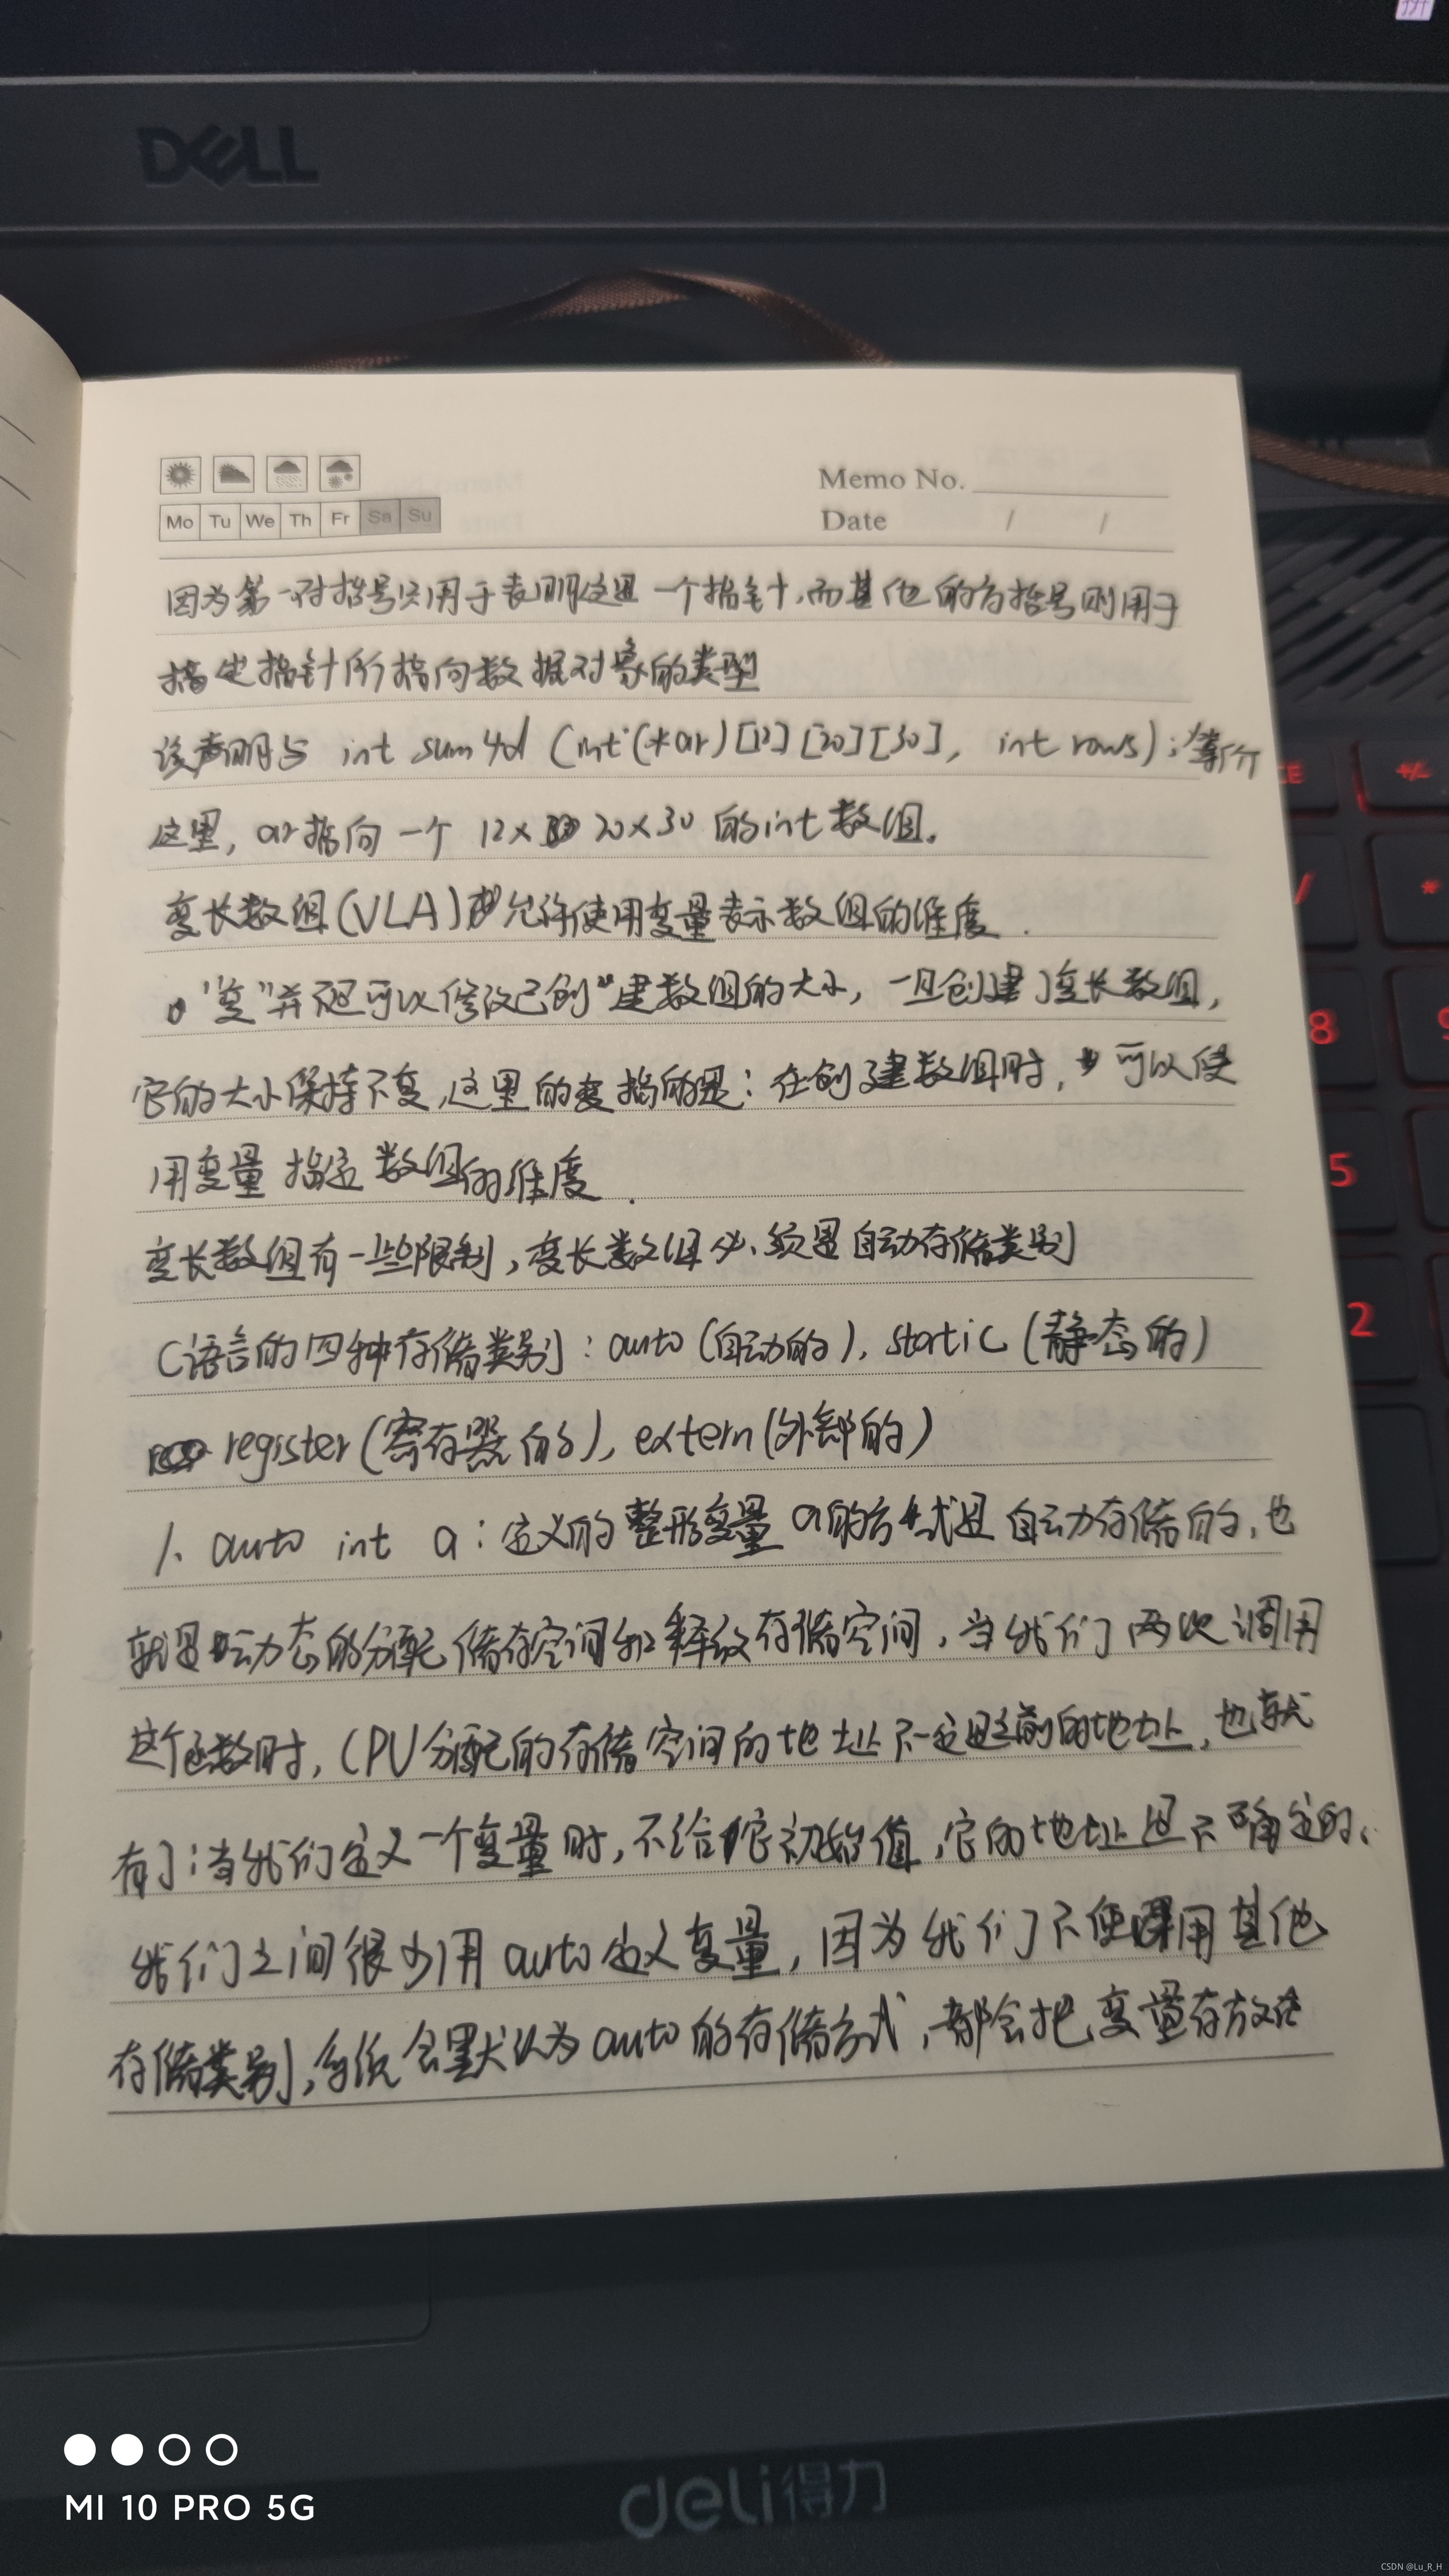 DELL
Memo No.
Mo Tu We Th Fr Sa Su
Date / /
因为第一对括号只用于表明这是一个指针,而其他的方括号则用于
指定指针所指向数据对象的类型
该声明与 int sum4d (int(*ar)[12][20][30], int rows);等价
这里,ar指向一个 12×20×30 的int数组。
变长数组(VLA)允许使用变量表示数组的维度.
"变"并不是可以修改已创建数组的大小,一旦创建了变长数组,
它的大小保持不变,这里的变指的是:在创建数组时,可以使
用变量指定数组的维度.
变长数组有一些限制,变长数组必须是自动存储类别
C语言的四种存储类别:auto(自动的),static(静态的)
register(寄存器的),extern(外部的)
1. auto int a:定义的整形变量a的方式是自动存储的,也
就是动态的分配储存空间和释放存储空间,当我们两次调用
这个函数时,CPU分配的存储空间的地址不一定是之前的地址,也就
有了:当我们定义一个变量时,不给它初始值,它的地址是不确定的。
我们之间很少用auto定义变量,因为我们不使用其他
存储类别,系统会默认为auto的存储方式,都会把变量存放在
CE +/-
/ *
8 9
5
2
deli得力
MI 10 PRO 5G
CSDN @Lu_R_H